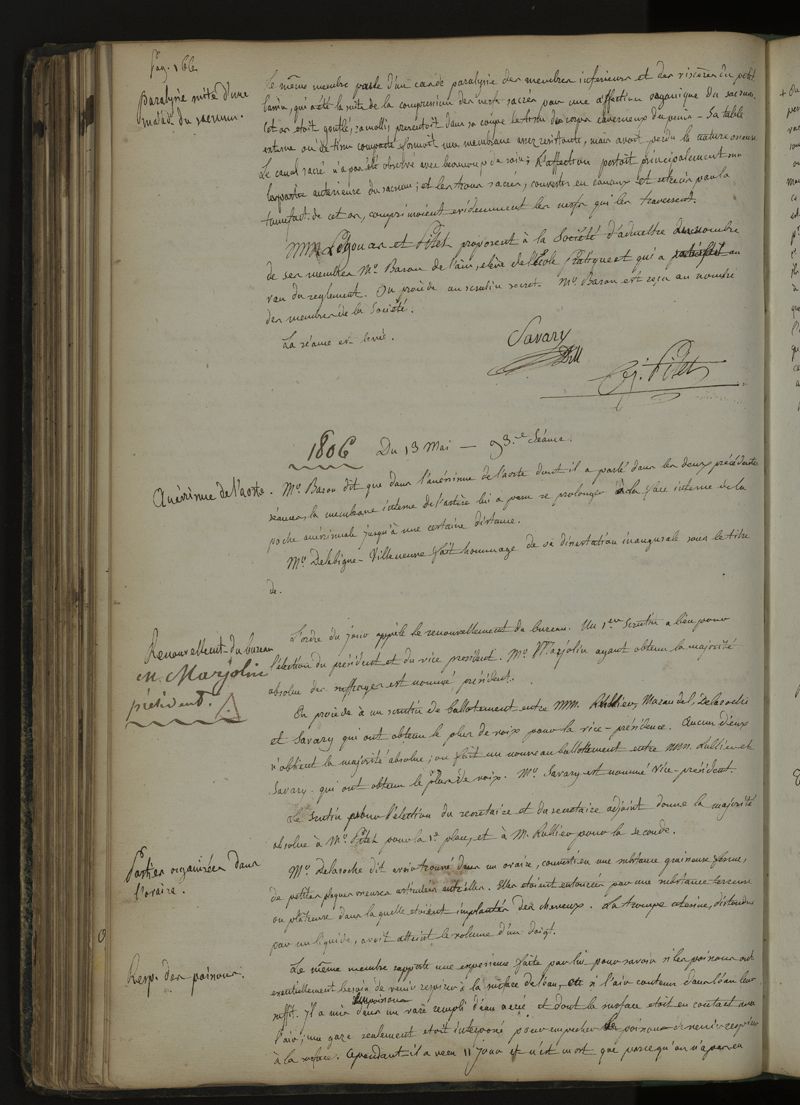 Pag. 166.
Paralysie suite d'une
malad. du sacrum.
Le même membre parle d'un cas de paralysie des membres inférieurs et des viscères du petit
bassin, qui a été la suite de la compression des nerfs sacrés par une affection organique du sacrum.
Cet os étoit gonflé, ramolli, présentoit dans sa coupe le tissu des corps caverneux du penis - Sa table
externe ou de tissu compacte formoit une membrane assez résistante, mais avoit perdu la nature osseuse.
Le canal sacré n'a pas été observé avec beaucoup de soin; L'affection portoit principalement sur
la partie antérieure du sacrum; et les trous sacrés, convertis en canaux et rétrécis par la
tuméfact. de cet os, comprimoient evidemment les nerfs qui les traversent.
MM. Legouas et Pitet proposent à la Société d'admettre au nombre
de ses membres Mr. Baron de l'ain, elève de l'école pratique et qui a satisfait au
vœu du reglement. On procède au scrutin secret. Mr. Baron est reçu au nombre
des membres de la Société.
La séance est levée.
Savary
Pitet
1806 Du 13 Mai — 93.e Séance.
Anévrisme de l'aorte.
Mr. Baron dit que dans l'anévrisme de l'aorte dont il a parlé dans les deux précédentes
séances, la membrane interne de l'artère lui a paru se prolonger à la face interne de la
poche anévrismale jusqu'à une certaine distance.
Mr. Delabigne-Villeneuve fait hommage de sa dissertation inaugurale sous le titre
de.
Renouvellement du bureau
M. Marjolin
président.
L'ordre du jour appèle le renouvellement du bureau. Un 1er scrutin a lieu pour
l'élection du président et du vice président. Mr. Marjolin ayant obtenu la majorité
absolue des suffrages est nommé président.
On procède à un scrutin de ballotement entre MM. Rullier, Delaroche
et Savary qui ont obtenu le plus de voix pour la vice-présidence. Aucun d'eux
n'obtient la majorité absolue; on fait un nouveau ballottement entre MM. Rullier et
Savary qui ont obtenu le plus de voix. Mr. Savary est nommé vice-président.
Le scrutin pour l'élection du secrétaire et du secrétaire adjoint donne la majorité
absolue à Mr. Pitet pour la 1e. place, et à M. Rullier pour la seconde.
Parties organisées dans
l'ovaire.
Mr. Delaroche dit avoir trouvé dans un ovaire, converti en une substance graisseuse jaune,
de petites plaques osseuses articulées entr'elles. Elles étoient entourées par une substance terreuse
ou plâtreuse dans laquelle étoient implantés des cheveux. La trompe utérine, distendue
par un liquide, avoit atteint le volume d'un doigt.
Resp. des poissons.
Le même membre rapporte une expérience faite par lui pour savoir si les poissons ont
essentiellement besoin de venir respirer à la surface de l'eau, ou si l'air contenu dans l'eau leur
suffit. Il a mis un poisson dans un vase rempli d'eau aérée et dont la surface etoit en contact avec
l'air; une gaze seulement etoit interposée pour empecher le poisson de venir respirer
à la surface. Cependant il a vecu 11 jours et n'est mort que parce qu'on n'a pas eu